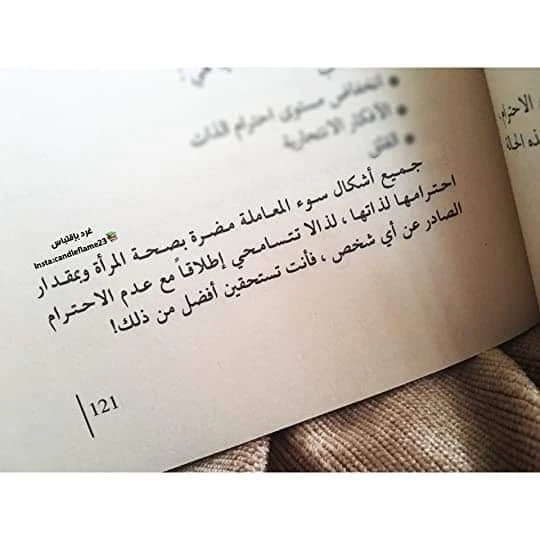 انخفاض مستوى احترام الذات
الأفكار الانتحارية
القلق
جميع أشكال سوء المعاملة مضرة بصحة المرأة وبمقدار
احترامها لذاتها ، لذالا تتسامحي إطلاقاً مع عدم الاحترام
الصادر عن أي شخص ، فأنت تستحقين أفضل من ذلك!
121
غرد بإقتباس
Insta:candleflame23
م الاحترام
ذه الحالة